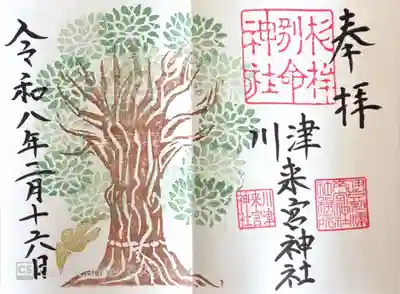 奉拝
杉桙
別命
神社
川津来宮神社
川津
来宮
神社
令和八年二月十六日
CS